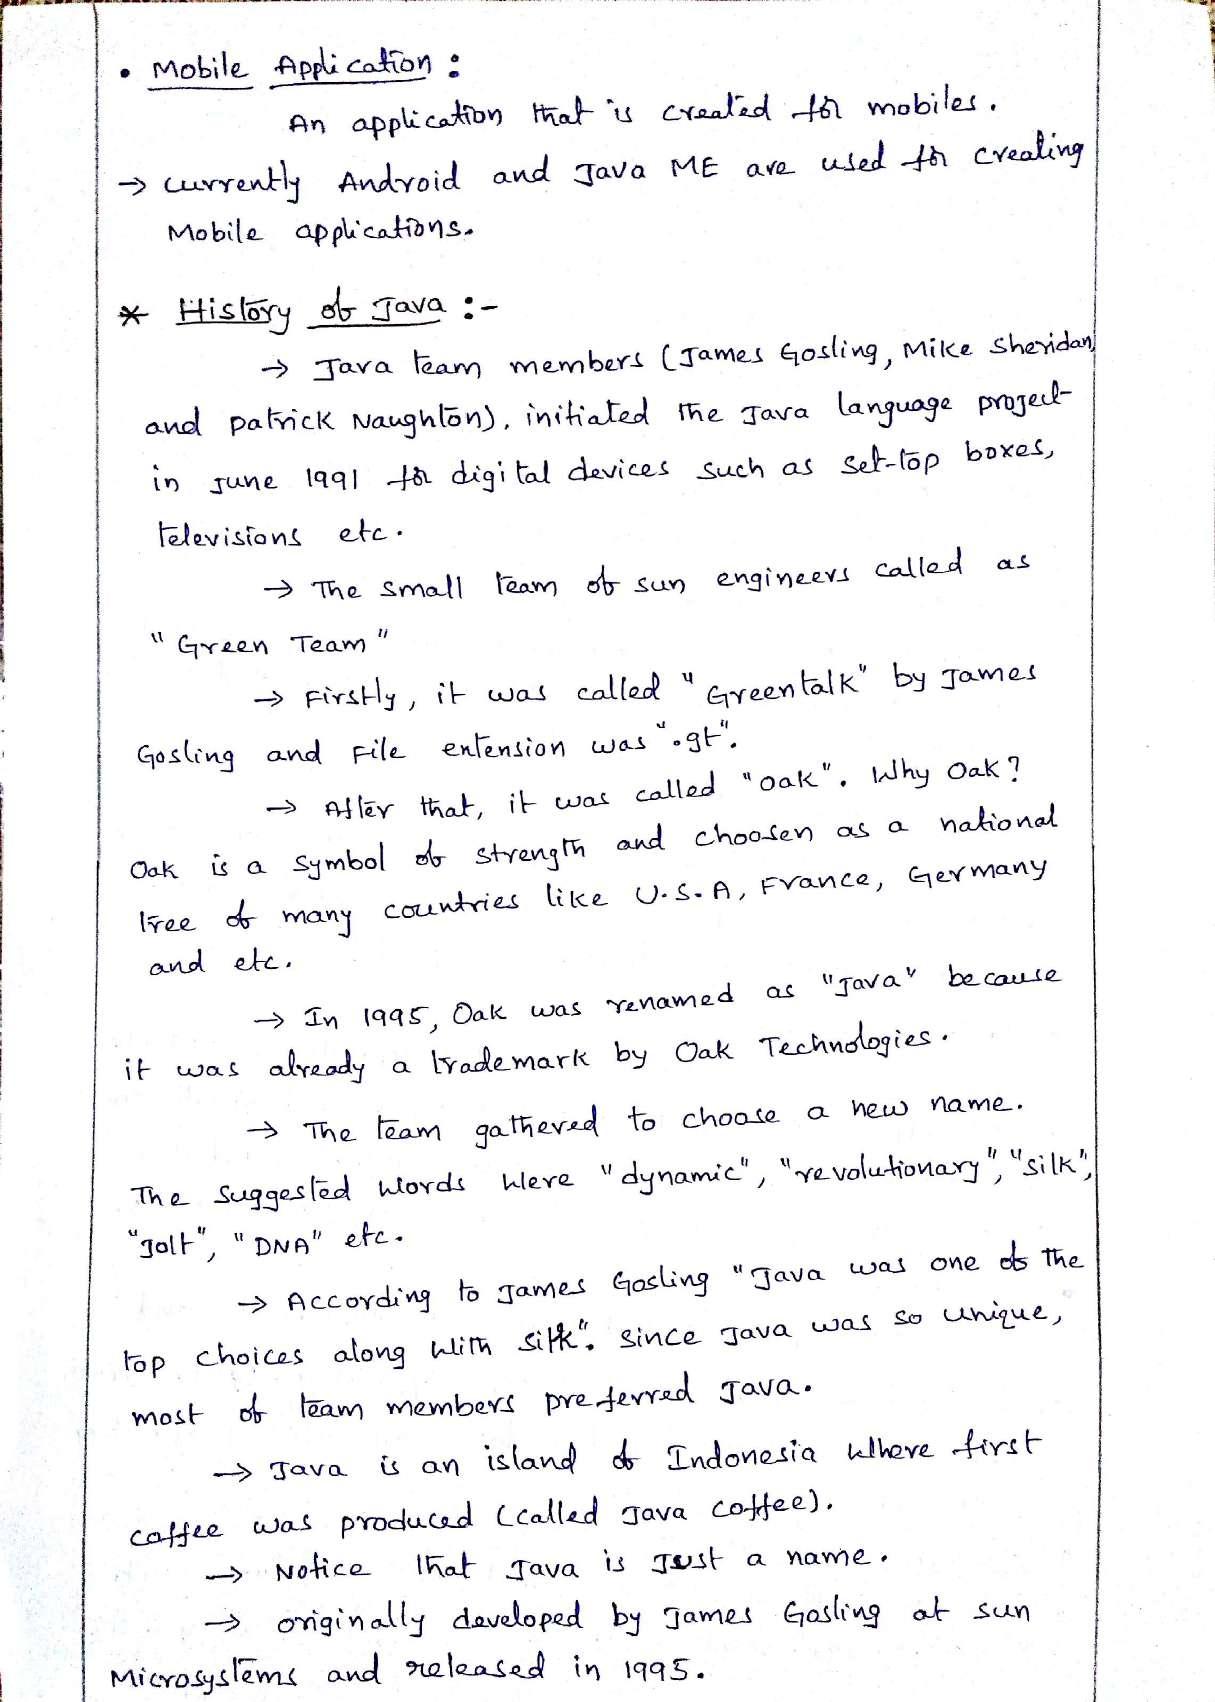 • Mobile Application :
An application that is created for mobiles.
→ currently Android and Java ME are used for creating
Mobile applications.
* History of Java :-
→ Java team members (James Gosling, Mike Sheridan,
and patrick Naughton), initiated the Java language project
in June 1991 for digital devices such as set-top boxes,
televisions etc.
→ The small team of sun engineers called as
"Green Team"
→ Firstly, it was called "Greentalk" by James
Gosling and File entension was ".gt".
→ After that, it was called "oak". Why Oak?
Oak is a symbol of strength and choosen as a national
tree of many countries like U.S.A, France, Germany
and etc.
→ In 1995, Oak was renamed as "Java" because
it was already a trademark by Oak Technologies.
→ The team gathered to choose a new name.
The suggested words were "dynamic", "revolutionary", "silk",
"Jolt", "DNA" etc.
→ According to James Gosling "Java was one of the
top choices along with silk". since Java was so unique,
most of team members preferred Java.
→ Java is an island of Indonesia where first
coffee was produced (called Java coffee).
→ Notice that Java is Just a name.
→ originally developed by James Gosling at sun
Microsystems and released in 1995.